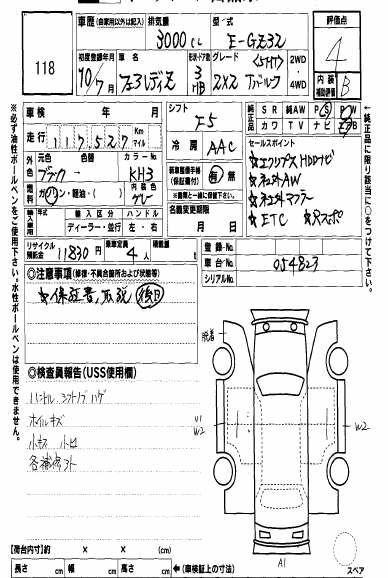 車歴 (自家用以外は記入)
排気量
型・式
評価点
3000cc
E-GZ32
4
118
初度登録年月
車名
形状・ドア数
グレード
10/7
フェアレディZ
3
HB
2X2
Tバールーフ
2WD・4WD
内装補助評価
B
※必ず油性ボールペンをご使用下さい。水性ボールペンは使用できません。
車検 年 月
シフト
F5
純正品
SR 純AW PS PW
カワ TV ナビ エアB
↑純正品に限り該当に○をつけて下さい。
走行
117527
Km
マイル
冷房
AAC
セールスポイント
☆エクリプスHDDナビ
☆社外AW
☆社外マフラー
☆ETC
外色
元色 色替
カラーNo.
ブラック→
KH3
新車整備手帳
(保証書付)
有・無
燃料
ガソリン・軽油・( )
内装色
グレー
名義変更期限
月 日
輸入車
年式
輸入区分
ハンドル
ディーラー・並行
左・右
リサイクル預託金
11830円
乗車定員
4人
積載量
登録No.
車台No.
054823
シリアルNo.
◎注意事項 (修復・不具合箇所および状態等)
☆保証書、取説 後日
脱着
◎検査員報告(USS使用欄)
ハンドル、シフトノブハゲ
ホイルキズ
W2
W2
小キズ 小凹
A1
【荷台内寸】約 × × (cm)
長さ cm 幅 cm 高さ cm ←(車検証上の寸法)
スペア